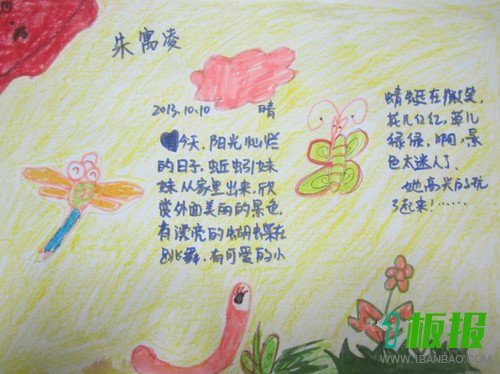 朱寓凌
2013.10.10 晴
今天，阳光灿烂
的日子，蚯蚓妹
妹从家里出来，欣
赏外面美丽的景色，
有漂亮的蝴蝶在
跳舞，有可爱的小
蜻蜓在微笑，
花儿红红，草儿
绿绿，啊，景
色太迷人了。
她高兴的玩
了起来！……
1板报
WWW.1BANBAO.COM